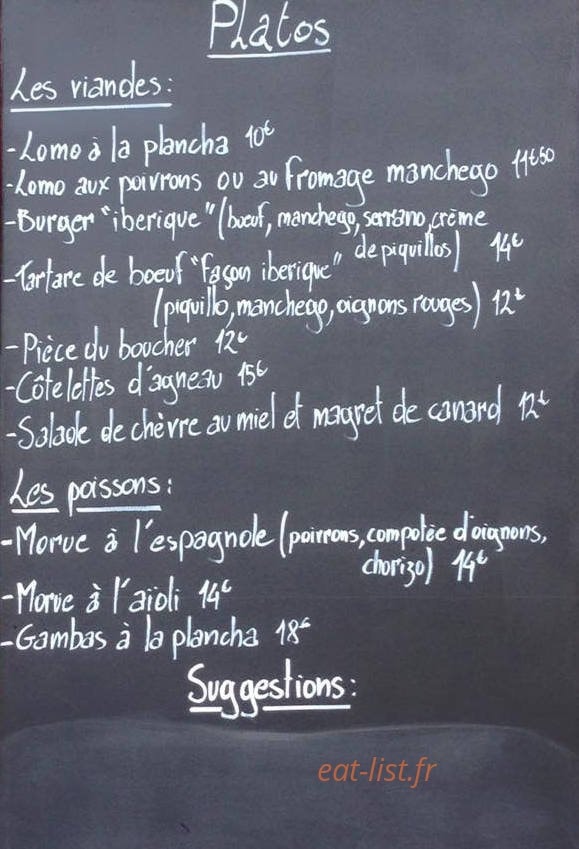 Platos
Les viandes:
-Lomo à la plancha 10€
-Lomo aux poivrons ou au fromage manchego 11€50
-Burger "iberique" (boeuf, manchego, serrano, crème
de piquillos) 14€
-Tartare de boeuf "façon iberique"
(piquillo, manchego, oignons rouges) 12€
-Pièce du boucher 12€
-Côtelettes d'agneau 15€
-Salade de chèvre au miel et magret de canard 12€
Les poissons:
-Morue à l'espagnole (poivrons, compotée d'oignons,
chorizo) 14€
-Morue à l'aïoli 14€
-Gambas à la plancha 18€
Suggestions:
eat-list.fr